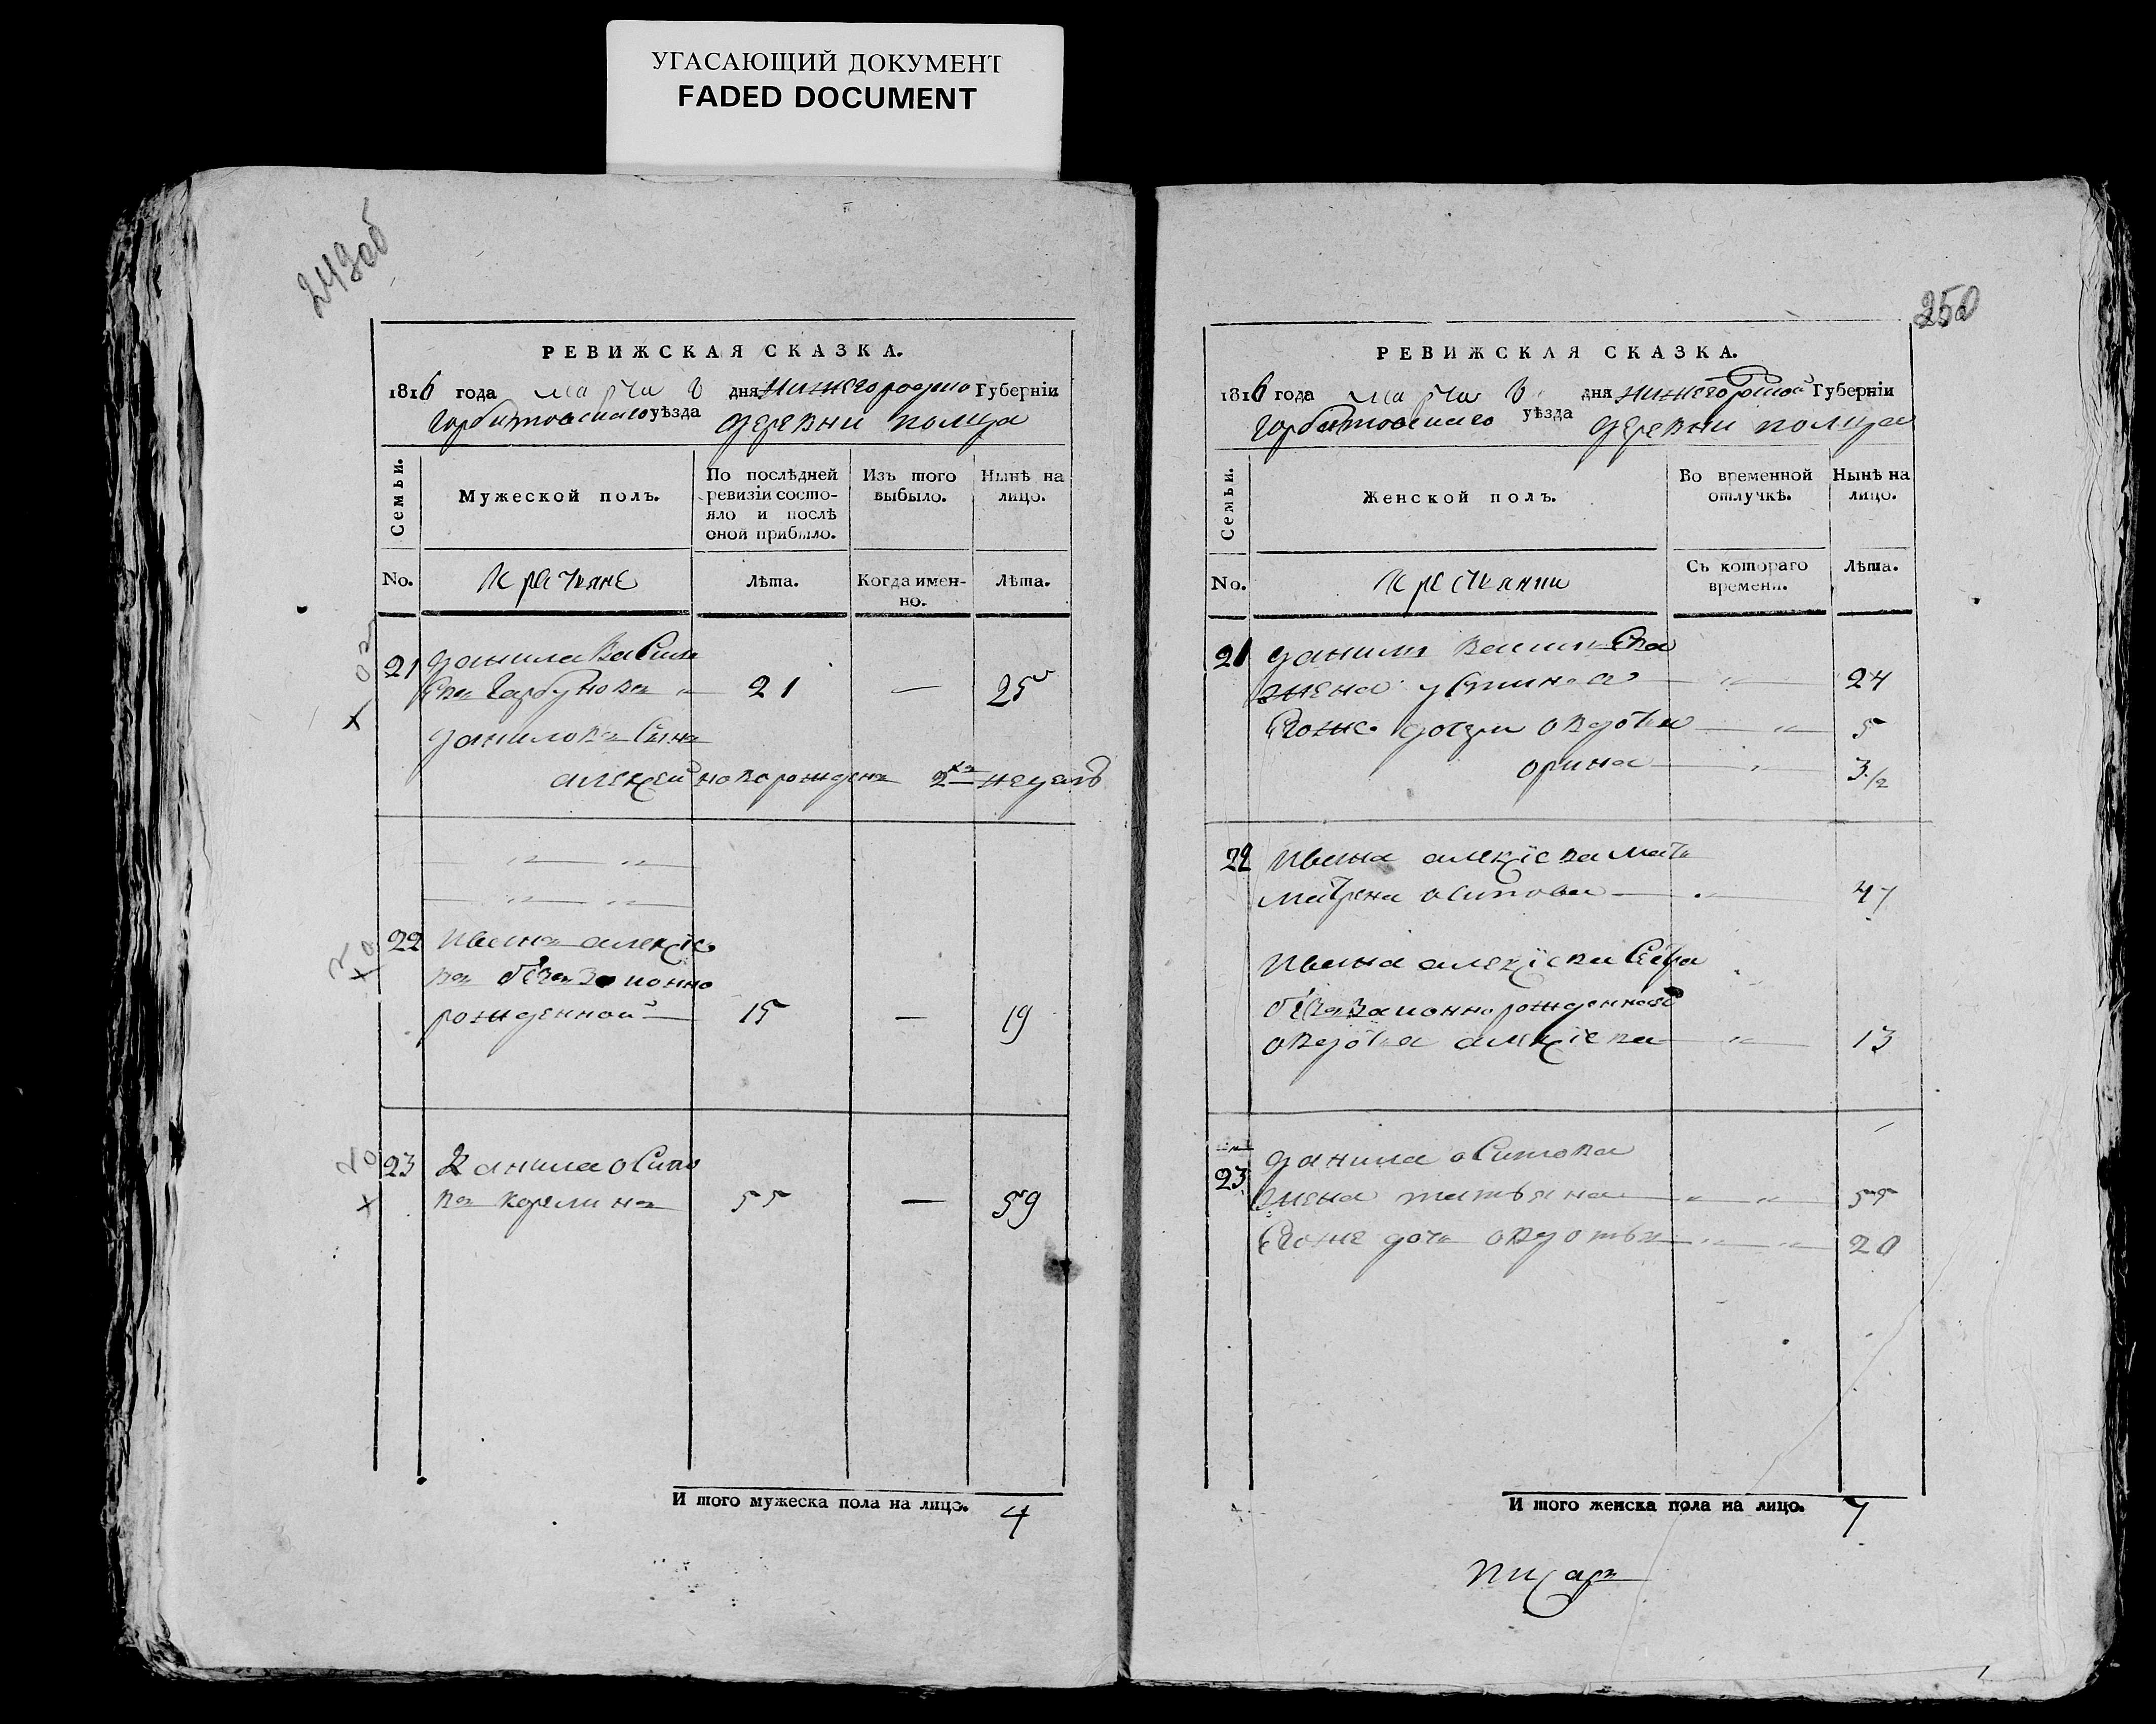 УГАСАЮЩИЙ ДОКУМЕНТ
FADED DOCUMENT
249об
РЕВИЖСКАЯ СКАЗКА.
1816 года марта 8 дня Нижегородско Губерніи
Горбатовскаго уѣзда деревни полца
Семьи.
Мужеской полъ.
По послѣдней ревизіи состо-
яло и послѣ
оной прибыло.
Изъ того выбыло.
Нынѣ на лицо.
No.
Крестьяне
Лѣта.
Когда имен-
но.
Лѣта.
21 данила васил
евъ Гарбуновъ 21 — 25
даниловъ сынъ
алексей новорожденъ 2хъ недель
22 иванъ алексіе
въ безаконно
рожденной 15 — 19
23 данила осипо
въ карелинъ 55 — 59
И того мужеска пола на лицо. 4
250
РЕВИЖСКАЯ СКАЗКА.
1816 года марта 8 дня нижегородской Губерніи
Горбатовскаго уѣзда деревни полца
Семьи.
Женской полъ.
Во временной отлучкѣ.
Нынѣ на лицо.
No.
Съ котораго времени.
Лѣта.
21 данилы васильева
жена устинья 24
егоже дочери овдотья 5
орина 3 1/2
22 ивана алексіева мать
матрена осипова 47
ивана алексіева сестра
безаконнорожденная
овдотья алексіева 13
23 данила осипова
жена татьяна 55
егоже дочь овдотья 20
И того женска пола на лицо. 7
писарь